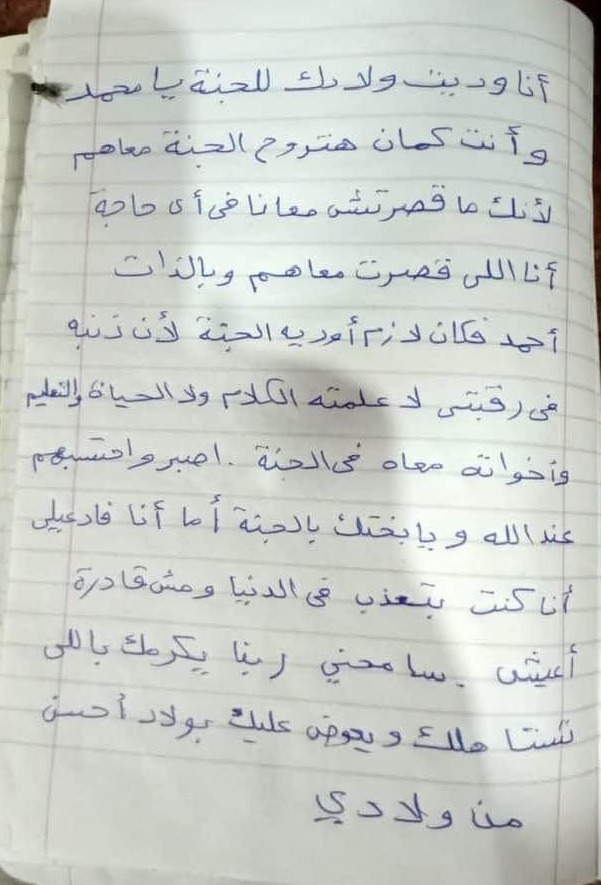 أنا وديت ولادك للجنة يا محمد
وأنت كمان هتروح الجنة معاهم
لأنك ما قصرتش معانا فى أى حاجة
أنا اللى قصرت معاهم وبالذات
أحمد فكان لازم أوديه الجنة لأن ذنبه
فى رقبتى لا علمته الكلام ولا الحياة والتعليم
وأخواته معاه فى الجنة . اصبر واحتسبهم
عند الله ويا بختك بالجنة أما أنا فادعيلى
أنا كنت بتعذب فى الدنيا ومش قادرة
أعيش . سامحني ربنا يكرمك باللى
تستاهلك ويعوض عليك بولاد أحسن
من ولادي